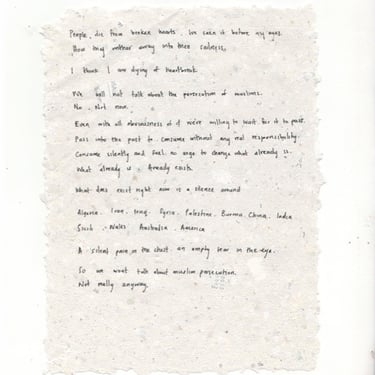 People die from broken hearts. Ive seen it before my eyes.
How they wither away into their sadness.
I think I am dying of heartbreak.
We will not talk about the persecution of muslims.
No. Not now.
Even with all obviousness of it we're willing to wait for it to pass.
Pass into the past to consume without any real responsibility.
Consume silently and feel no urge to change what already is.
What already is. Already exists.
What does exist right now is a silence around
Algeria. Iran. Iraq. Syria. Palestine. Burma. China. India
Wales Australia. America
A silent pain in the chest. an empty tear in the eye.
So we wont talk about muslim persecution.
Not really anyway.